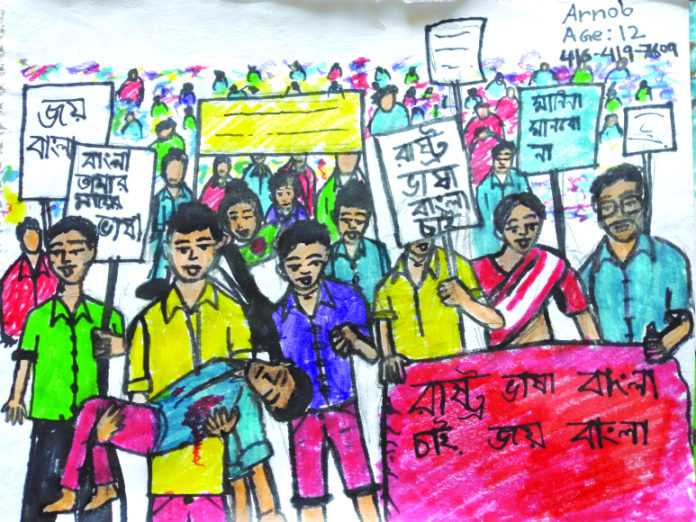 Arnob
Age: 12
416-419-7609
জয়
বাংলা
বাংলা
আমার
মায়ের
ভাষা
রাষ্ট্র
ভাষা
বাংলা
চাই
মানিনা
মানবো
না
রাষ্ট্র ভাষা বাংলা
চাই. জয় বাংলা